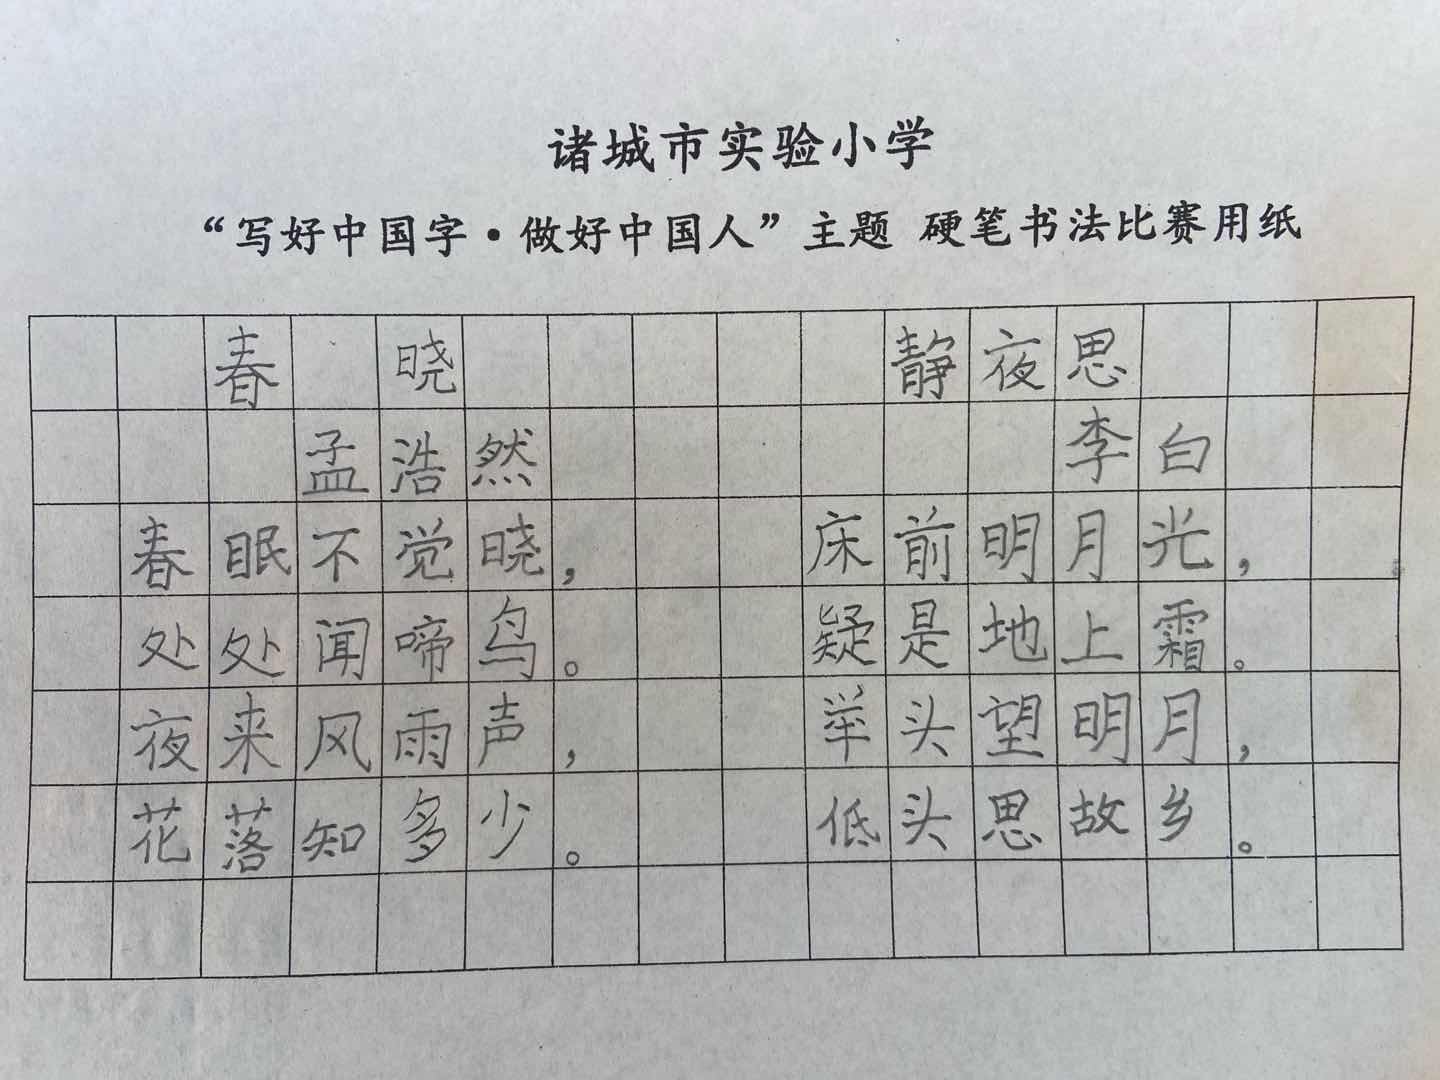 诸城市实验小学
“写好中国字·做好中国人”主题 硬笔书法比赛用纸
春 晓
孟浩然
春眠不觉晓，
处处闻啼鸟。
夜来风雨声，
花落知多少。
静夜思
李白
床前明月光，
疑是地上霜。
举头望明月，
低头思故乡。